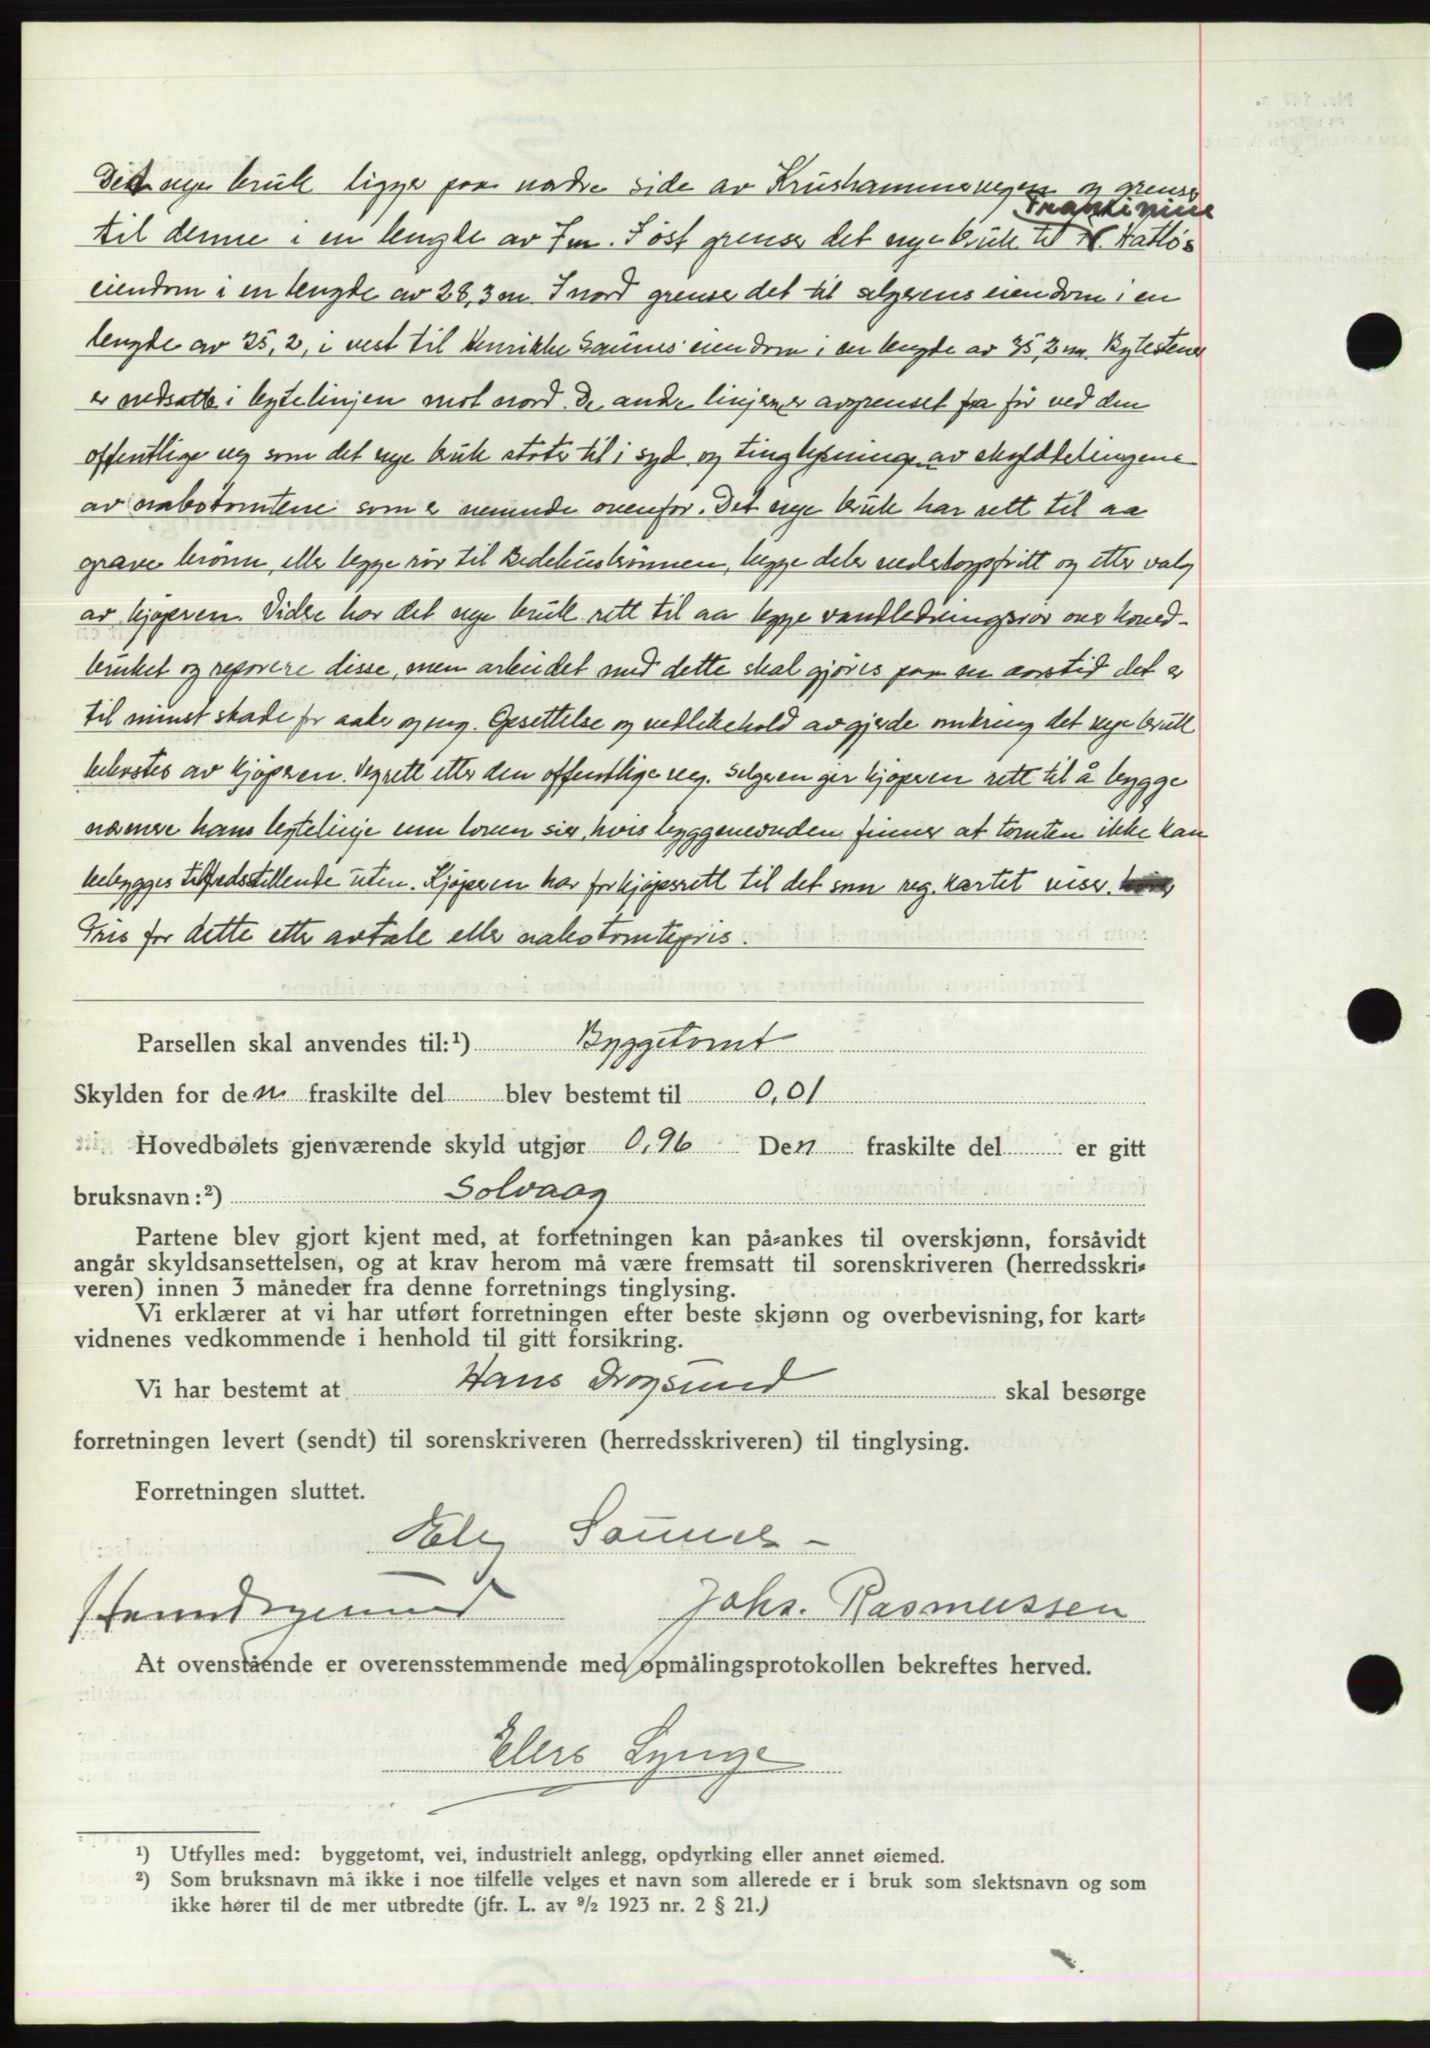 Det nye bruk ligger paa nordre side av Krushammervegen og grenser
Frankinine
til denne i en lengde av 7 m. I øst grenser det nye bruk til Hatløs
eiendom i en lengde av 28,3 m. I nord grenser det til selgerens eiendom i en
lengde av 25,2, i vest til Henrikke Saunes eiendom i en lengde av 35,2 m. Bytestener
er nedsatte i bytelinjen mot nord. De andre linjer er avgrenset fra før ved den
offentlige veg som det nye bruk støter til i syd og tinglysninger av skylddelingene
av nabotomtene som er nevnde ovenfor. Det nye bruk har rett til aa
grave brønn, eller legge rør til Bedehusbrønnen, begge deler vederlagsfritt og etter valg
av kjøperen. Videre har det nye bruk rett til aa legge vandledningsrør over hoved-
bruket og reparere disse, men arbeidet med dette skal gjøres paa en aarstid det er
til minst skade for aaker og eng. Opsettelse og vedlikehold av gjerde omkring det nye bruk
bekostes av kjøperen. Vegrett etter den offentlige veg. Selgeren gir kjøperen rett til å bygge
nærmere hans bytelinje enn loven sier, hvis byggenevnden finner at tomten ikke kan
bebygges tilfredsstillende uten. Kjøperen har forkjøpsrett til det som reg. kartet viser.
Pris for dette etter avtale eller nabotomtepris.
Parsellen skal anvendes til:¹) Byggetomt
Skylden for den fraskilte del blev bestemt til 0,01
Hovedbølets gjenværende skyld utgjør 0,96 Den fraskilte del er gitt
bruksnavn:²) Solvaag
Partene blev gjort kjent med, at forretningen kan på-ankes til overskjønn, forsåvidt
angår skyldsansettelsen, og at krav herom må være fremsatt til sorenskriveren (herredsskri-
veren) innen 3 måneder fra denne forretnings tinglysing.
Vi erklærer at vi har utført forretningen efter beste skjønn og overbevisning, for kart-
vidnenes vedkommende i henhold til gitt forsikring.
Vi har bestemt at Hans Drogsund skal besørge
forretningen levert (sendt) til sorenskriveren (herredsskriveren) til tinglysing.
Forretningen sluttet.
Saunes
Johs. Rasmussen
At ovenstående er overensstemmende med opmålingsprotokollen bekreftes herved.
Elers Lynge
¹) Utfylles med: byggetomt, vei, industrielt anlegg, opdyrking eller annet øiemed.
²) Som bruksnavn må ikke i noe tilfelle velges et navn som allerede er i bruk som slektsnavn og som
ikke hører til de mer utbredte (jfr. L. av 9/2 1923 nr. 2 § 21.)